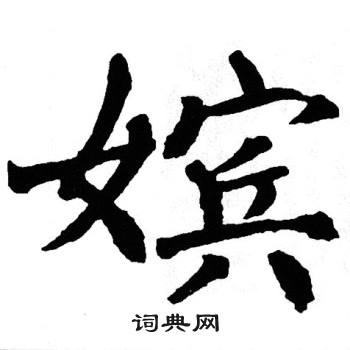 嫔
词典网